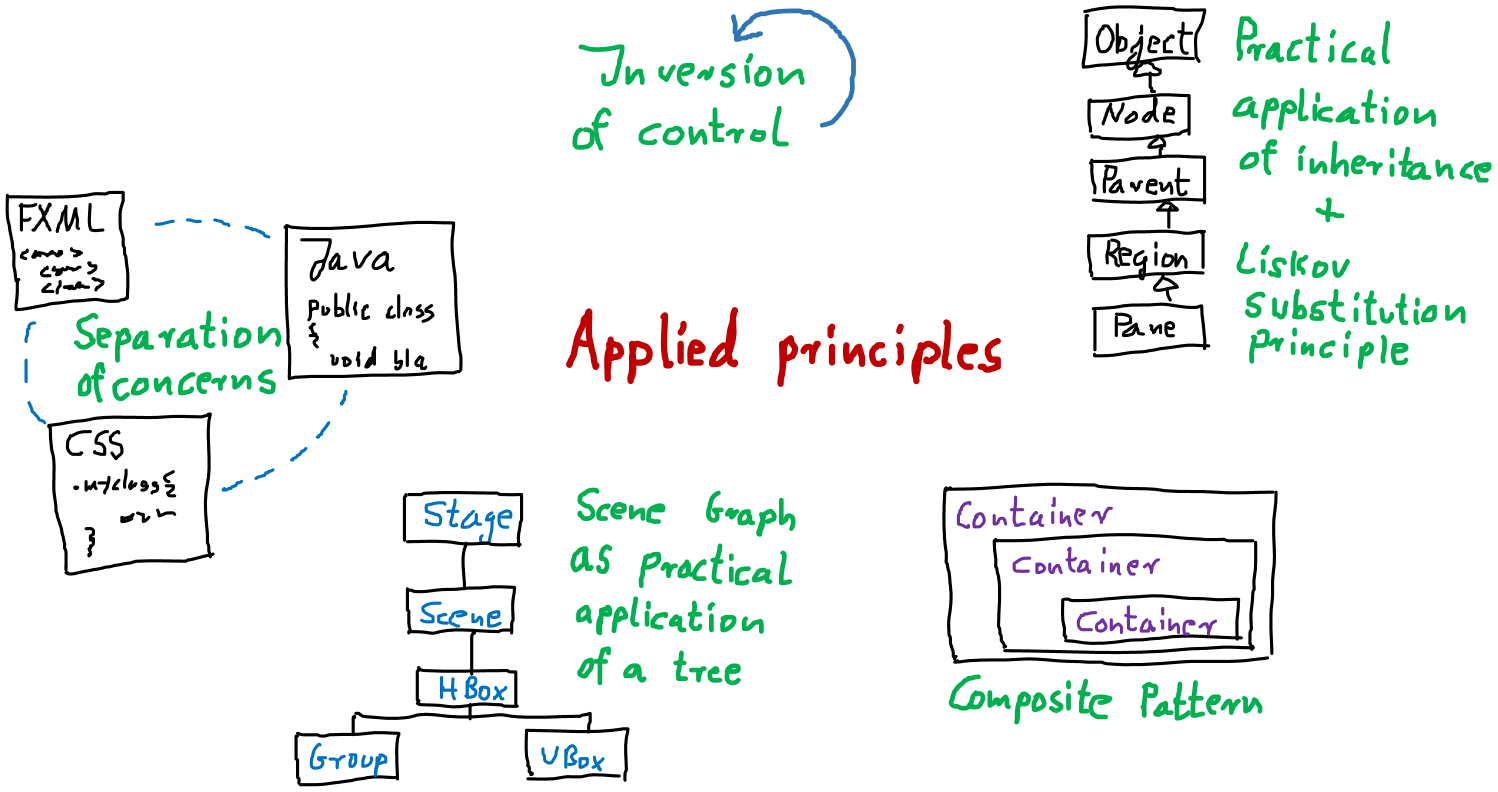 Inversion
of control
Object
Node
Parent
Region
Pane
Practical
application
of inheritance
+
Liskov
substitution
Principle
FXML
Java
public class
{
void bla
CSS
.myclass{
}
Separation
of concerns
Applied principles
Stage
Scene
HBox
Group
VBox
Scene Graph
as practical
application
of a tree
Container
Container
Container
Composite Pattern